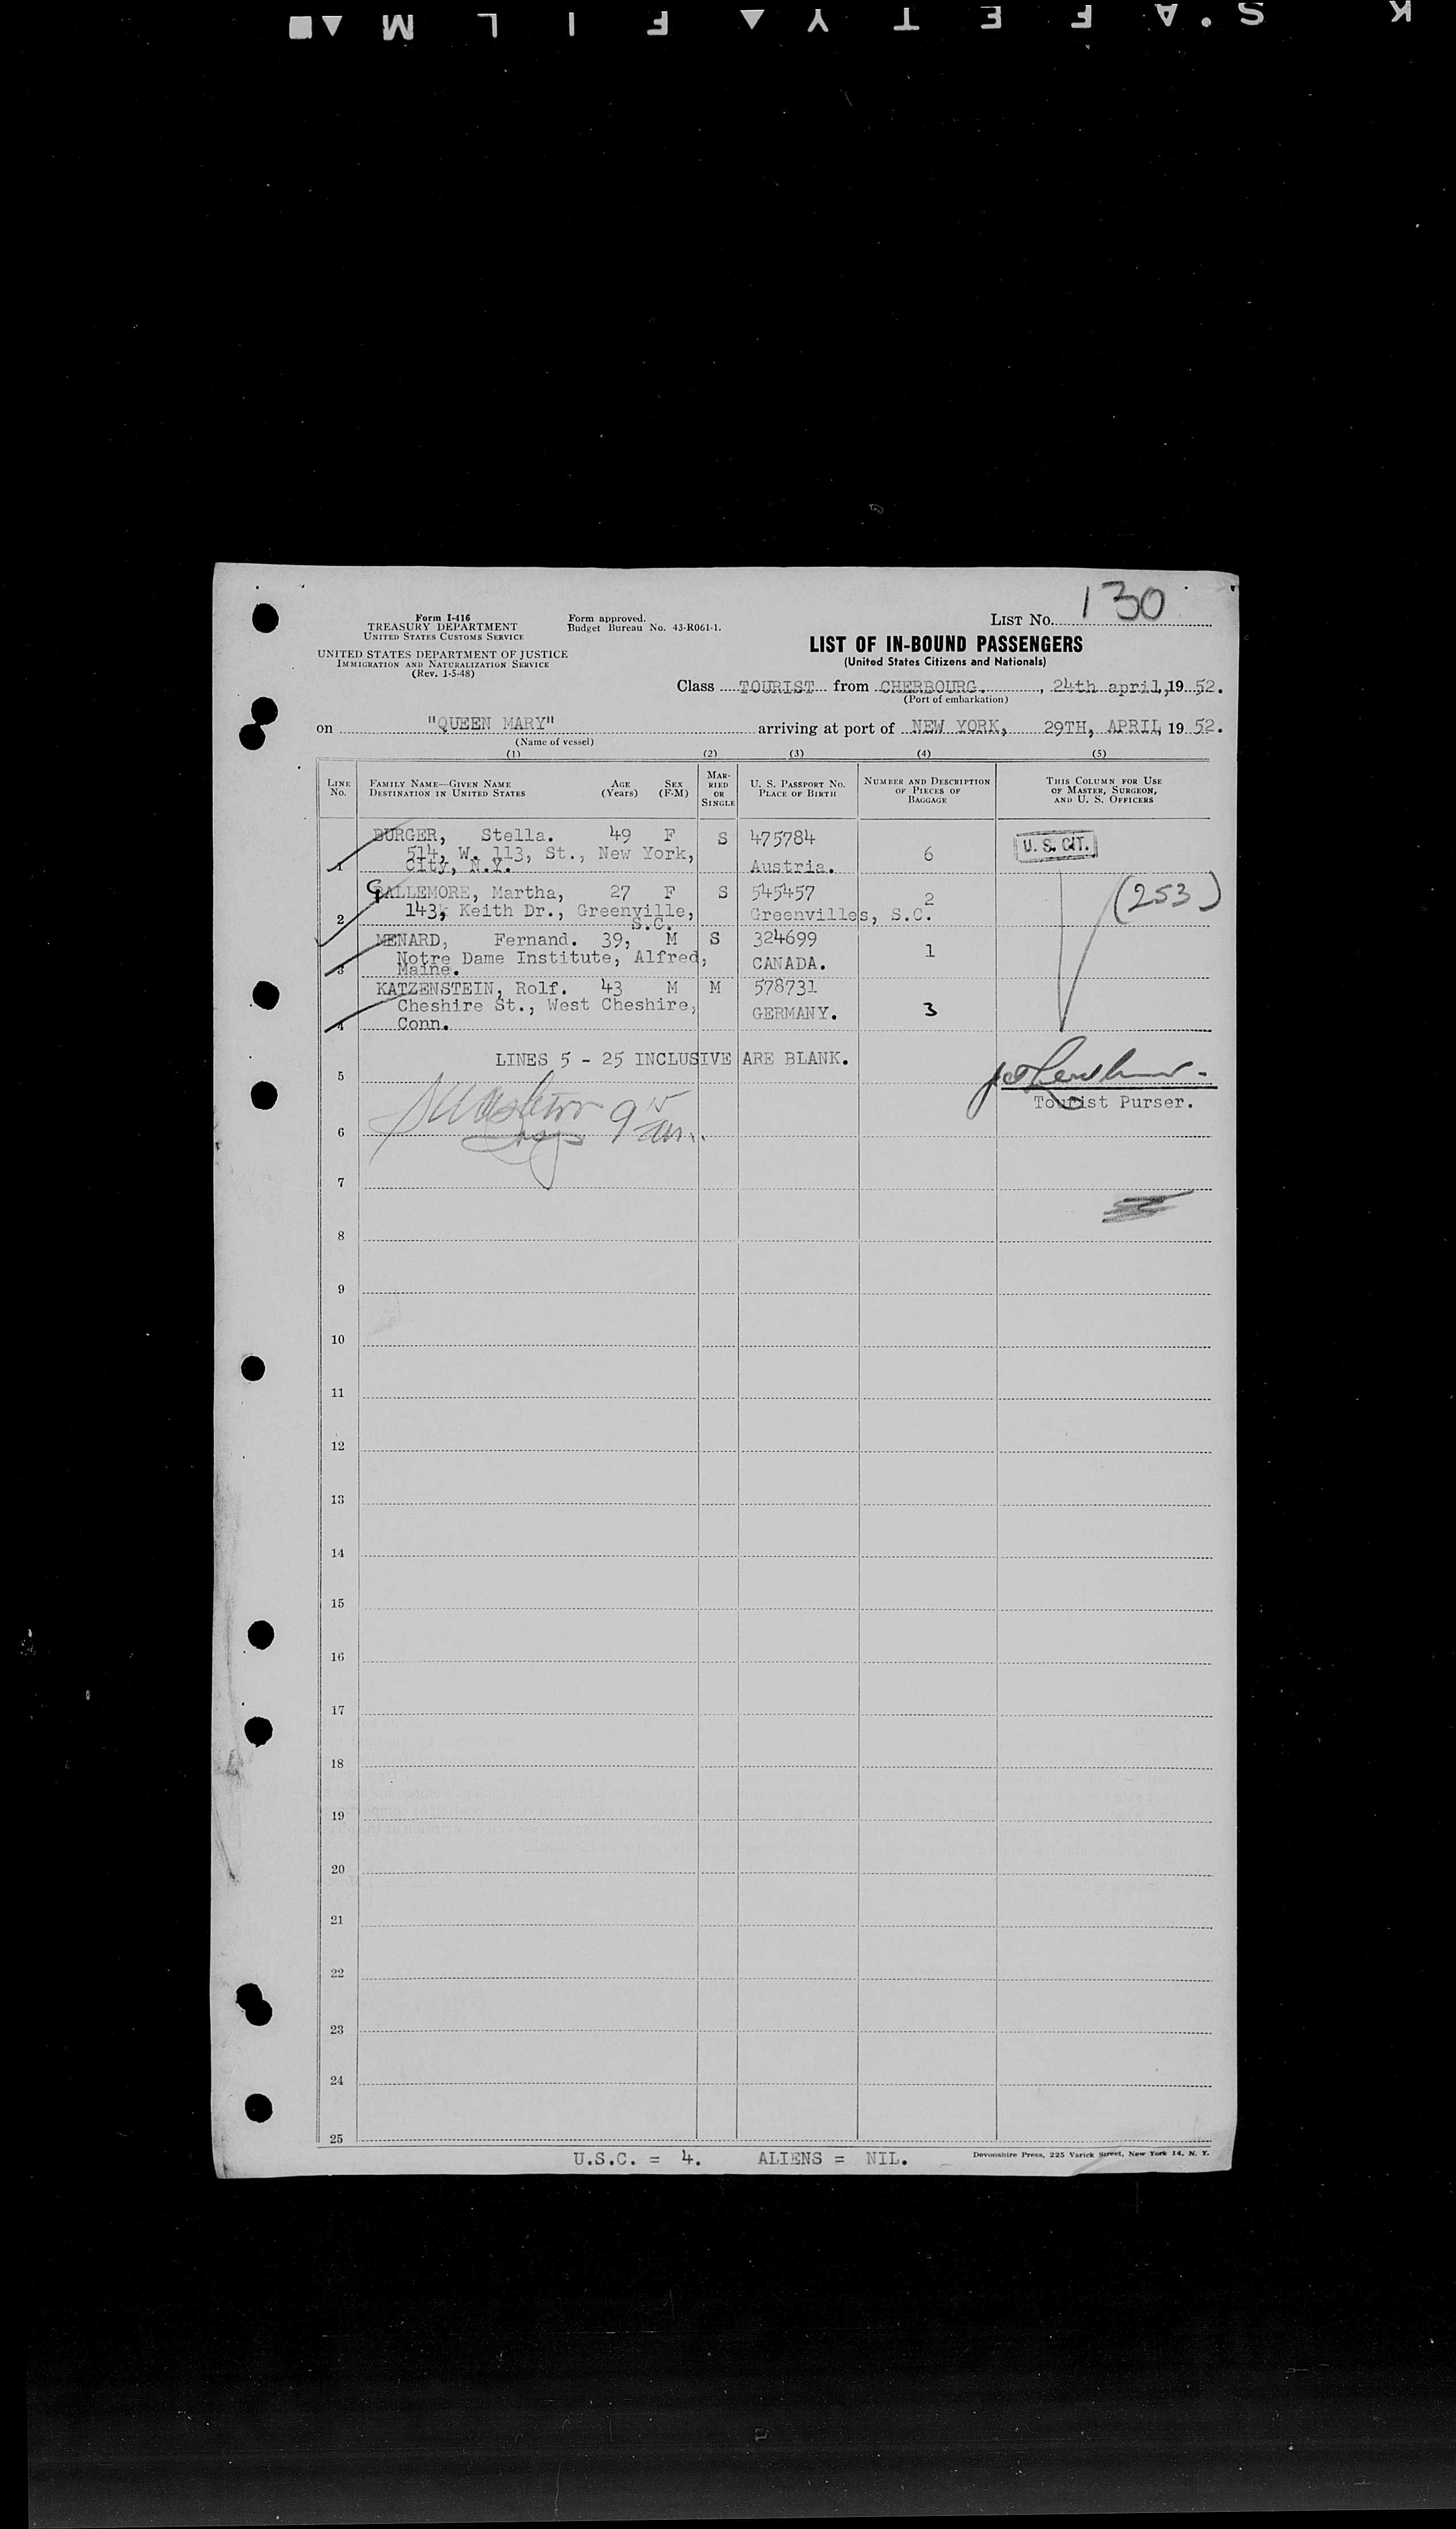 K S.AFETY▲FILM▲■
130
Form I-416
TREASURY DEPARTMENT
UNITED STATES CUSTOMS SERVICE
Form approved.
Budget Bureau No. 43-R061-1.
LIST No.
UNITED STATES DEPARTMENT OF JUSTICE
IMMIGRATION AND NATURALIZATION SERVICE
(Rev. 1-5-48)
LIST OF IN-BOUND PASSENGERS
(United States Citizens and Nationals)
Class TOURIST from CHERBOURG. , 24th april, 19 52.
(Port of embarkation)
on "QUEEN MARY" arriving at port of NEW YORK, 29TH, APRIL, 19 52.
(Name of vessel)
(1) (2) (3) (4) (5)
LINE No. FAMILY NAME—GIVEN NAME DESTINATION IN UNITED STATES AGE (Years) SEX (F-M) MARRIED OR SINGLE U. S. PASSPORT No. PLACE OF BIRTH NUMBER AND DESCRIPTION OF PIECES OF BAGGAGE THIS COLUMN FOR USE OF MASTER, SURGEON, AND U. S. OFFICERS
BURGER, Stella. 49 F S 475784
514, W. 113, St., New York, 6 U. S. CIT.
1 City, N.Y. Austria.
GALLEMORE, Martha, 27 F S 545457 2 (253)
143, Keith Dr., Greenville, Greenvilles, S.C.
2 S.C.
MENARD, Fernand. 39, M S 324699
Notre Dame Institute, Alfred, 1
3 Maine. CANADA.
KATZENSTEIN, Rolf. 43 M M 578731
Cheshire St., West Cheshire, GERMANY. 3
4 Conn.
LINES 5 - 25 INCLUSIVE ARE BLANK.
5
Tourist Purser.
9 15 am.
6
7
8
9
10
11
12
13
14
15
16
17
18
19
20
21
22
23
24
25
U.S.C. = 4. ALIENS = NIL. Devonshire Press, 225 Varick Street, New York 14, N. Y.